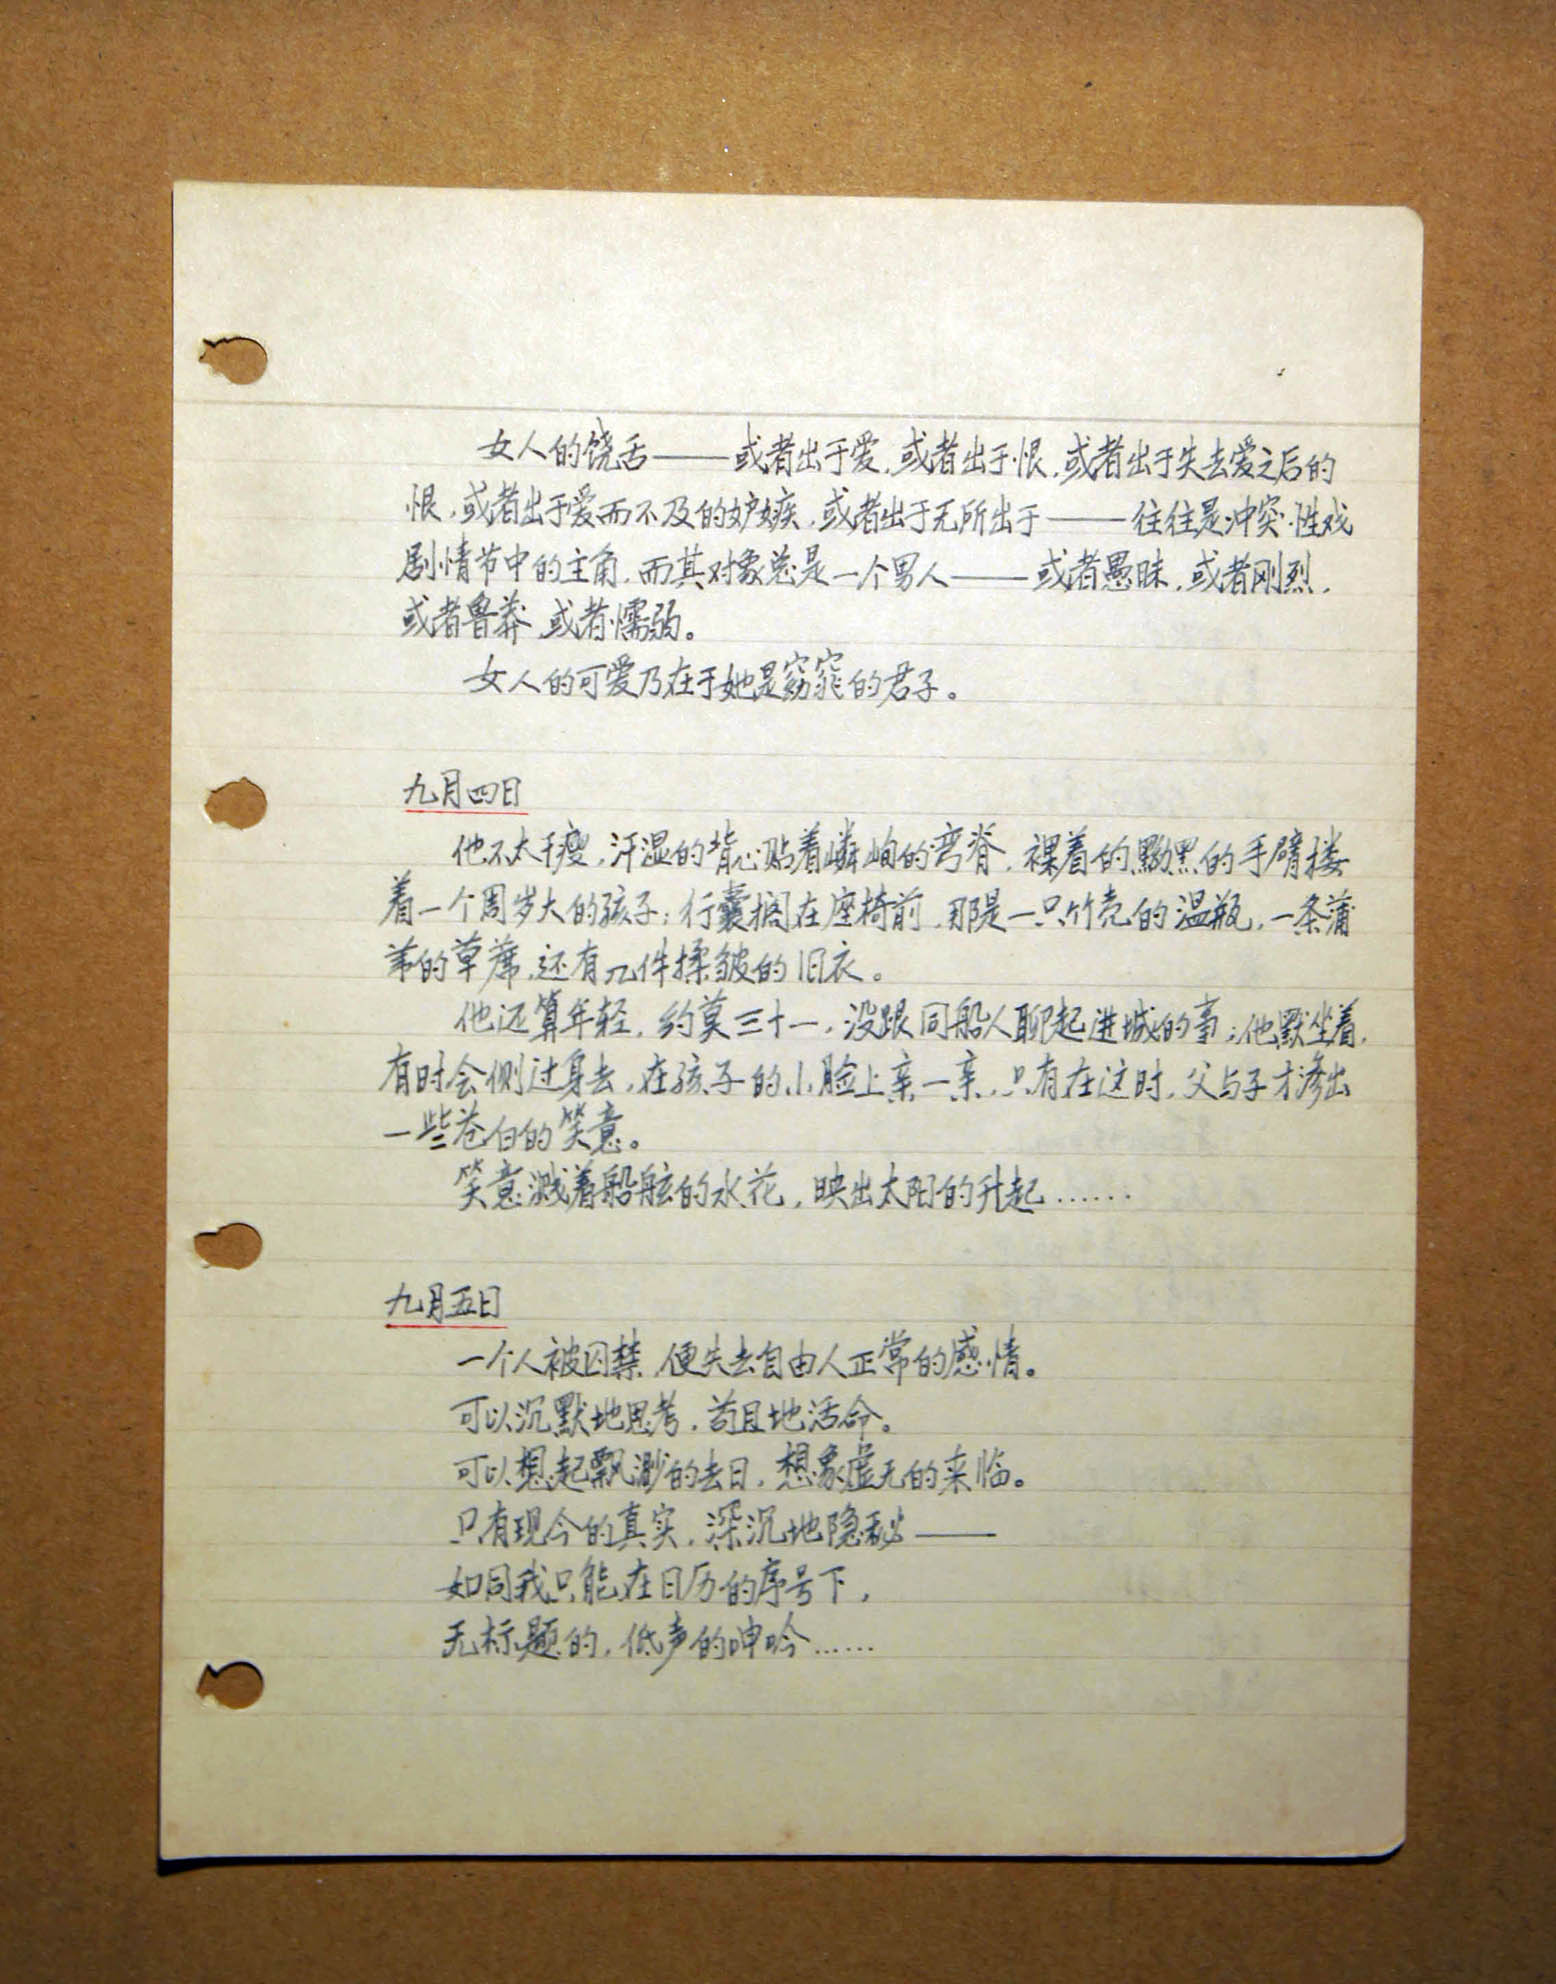 女人的饶舌——或者出于爱,或者出于恨,或者出于失去爱之后的
恨,或者出于爱而不及的妒嫉,或者出于无所出于——往往是冲突性戏
剧情节中的主角,而其对象总是一个男人——或者愚昧,或者刚烈,
或者鲁莽,或者懦弱。
女人的可爱乃在于她是窈窕的君子。
九月四日
他不太干瘦,汗湿的背心贴着嶙峋的弯脊,裸着的黝黑的手臂搂
着一个周岁大的孩子;行囊搁在座椅前,那是一只竹壳的温瓶,一条蒲
苇的草席,还有几件揉皱的旧衣。
他还算年轻,约莫三十一,没跟同船人聊起进城的事;他默坐着,
有时会侧过身去,在孩子的小脸上亲一亲,只有在这时,父与子才渗出
一些苍白的笑意。
笑意溅着船舷的水花,映出太阳的升起……
九月五日
一个人被囚禁,便失去自由人正常的感情。
可以沉默地思考,苟且地活命。
可以想起飘渺的去日,想象虚无的来临。
只有现今的真实,深沉地隐秘——
如同我只能在日历的序号下,
无标题的,低声的呻吟……